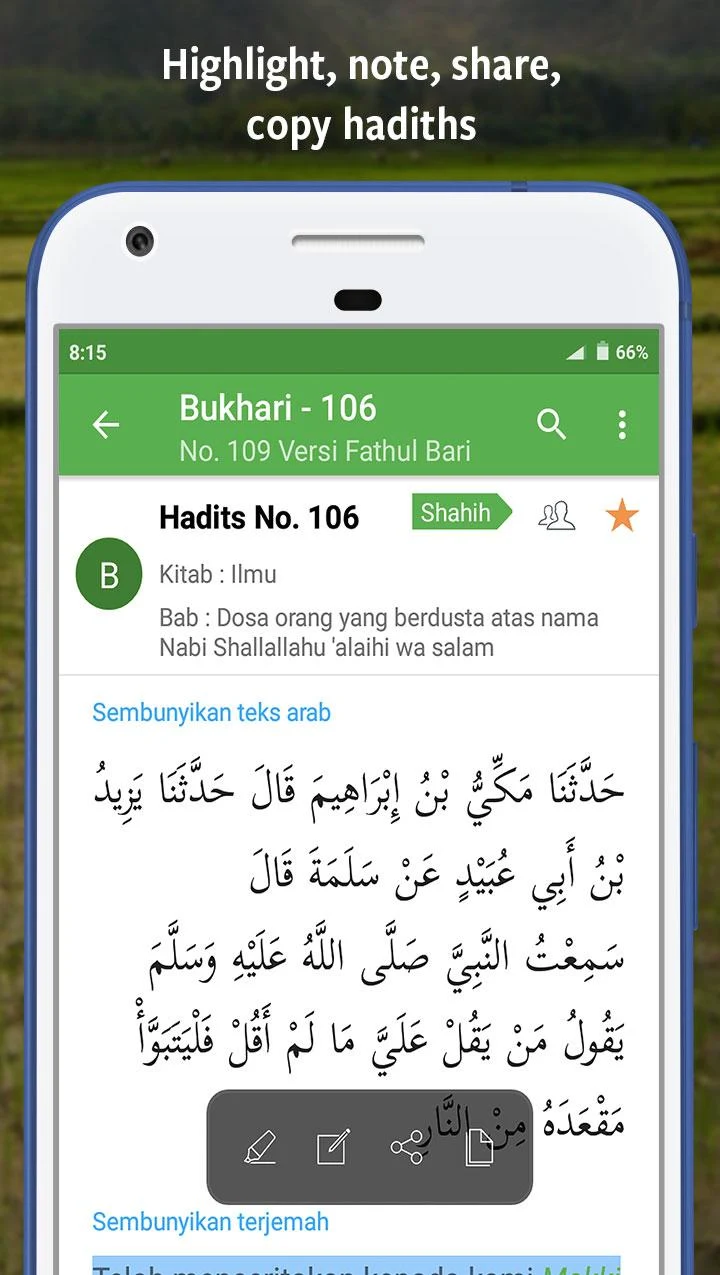 Highlight, note, share,
copy hadiths
8:15
66%
Bukhari - 106
No. 109 Versi Fathul Bari
Hadits No. 106
Shahih
B
Kitab : Ilmu
Bab : Dosa orang yang berdusta atas nama
Nabi Shallallahu 'alaihi wa salam
Sembunyikan teks arab
حَدَّثَنَا مَكِّيُّ بْنُ إِبْرَاهِيمَ قَالَ حَدَّثَنَا يَزِيدُ
بْنُ أَبِي عُبَيْدٍ عَنْ سَلَمَةَ قَالَ
سَمِعْتُ النَّبِيَّ صَلَّى اللَّهُ عَلَيْهِ وَسَلَّمَ
يَقُولُ مَنْ يَقُلْ عَلَيَّ مَا لَمْ أَقُلْ فَلْيَتَبَوَّأْ
مَقْعَدَهُ مِنْ النَّارِ
Sembunyikan terjemah
Telah menceritakan kepada kami Makki